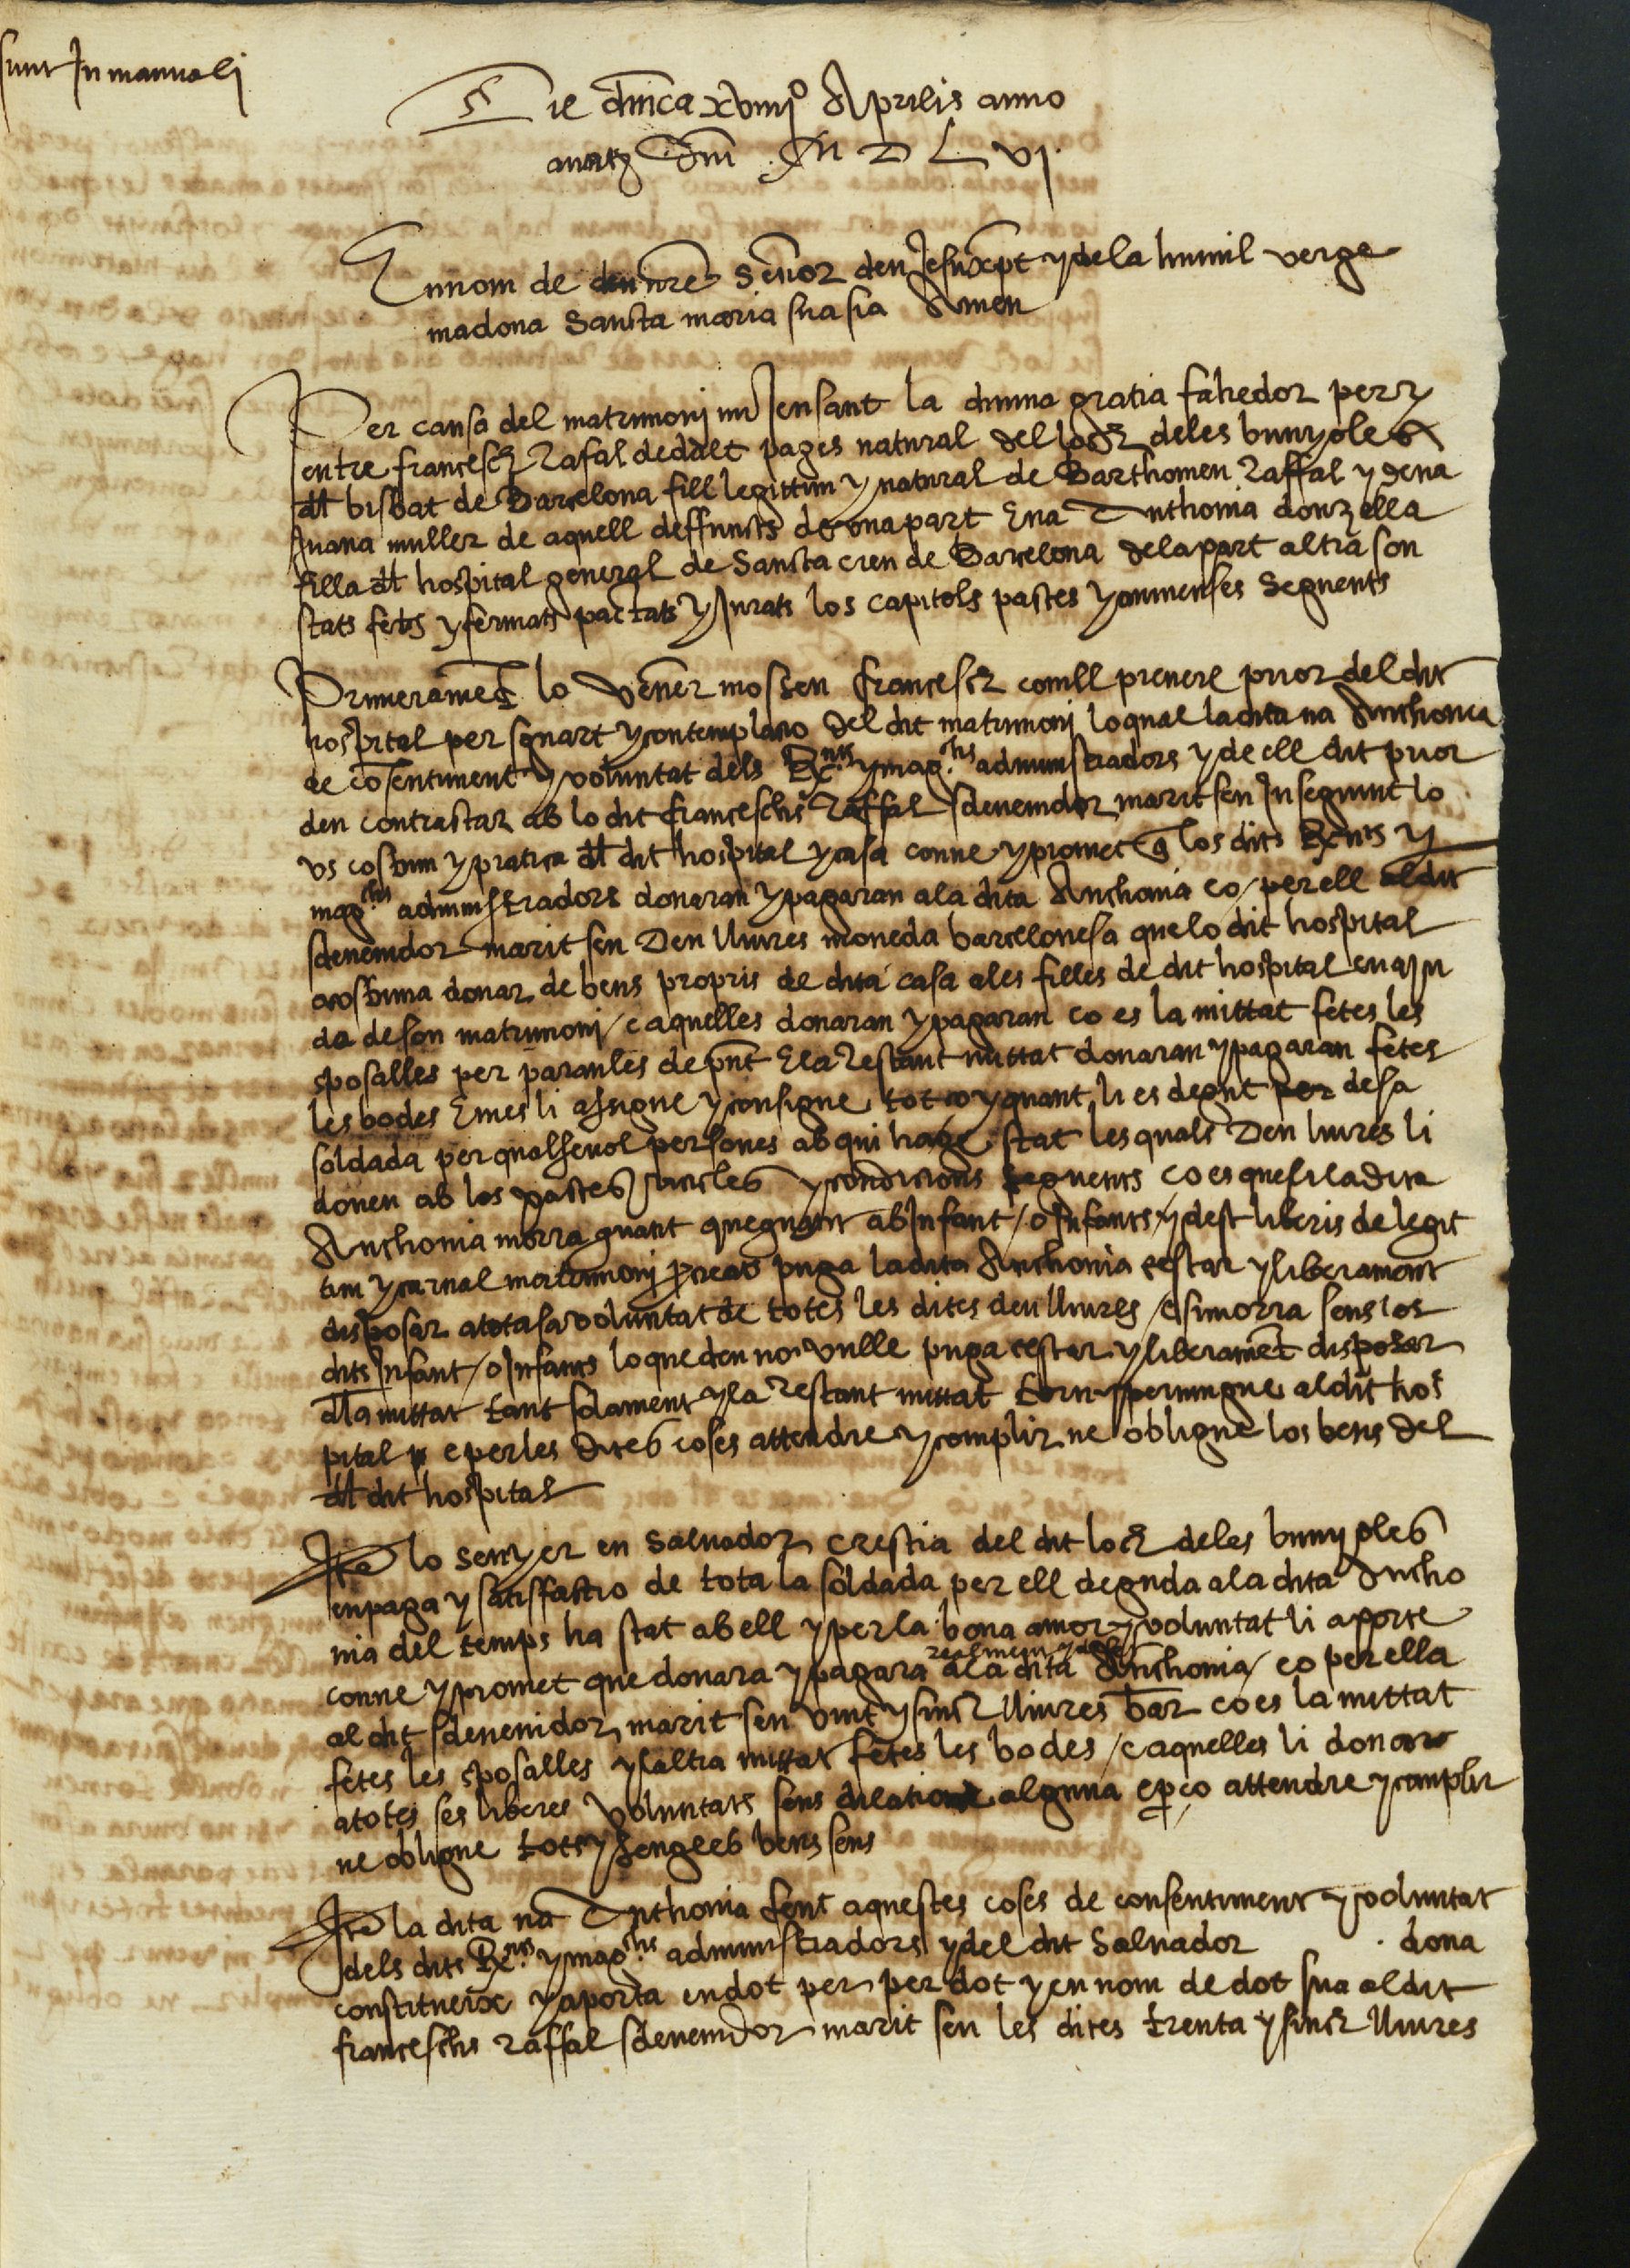 sunt In manuali
Die dnica xviiijº Aprilis anno
a natz Dni M D L vj.
En nom de deu nre Senor deu Jesuxpt y de la humil verge
madona Sancta maria sua sia Amen
Per causa del matrimonj mijensant la divina gratia fahedor per y
entre francesch Rafal de dalt pages natural del loch de les bunyoles
dl bisbat de Barcelona fill legittim y natural de Barthomeu Raffal y dena
Juana muller de aquell deffuncts de una part E na Anthonia donzella
filla dl hospital general de Sancta creu de Barcelona de la part altra son
stats fets y fermats pactats y jurats los capitols pactes y conuinenses Seguents
Primeramet lo vener mossen francesch comll preuere prior del dit
hospital per sguart y contemplacio del dit matrimonj lo qual la dita na Anthonia
de cosentiment y voluntat dels Rnts y magchs administradors y de ell dit prior
deu contractar ab lo dit franceschs Raffal sdeuenidor marit seu Inseguint lo
vs costum y pratica dl dit hospital y casa conue y promet q los dits Rents y
magchs administradors donaran y pagaran a la dita Anthonia co / per ell al dit
sdeuenidor marit seu Deu lliures moneda barcelonesa que lo dit hospital
acostuma donar de bens propris de dita casa a les filles de dit hospital en aju
da de son matrimonj / e aquelles donaran y pagaran co es la mittat fetes les
sposalles per paraules de pnt E la restant mittat donaran y pagaran fetes
les bodes E mes li assigne y consigne tot co y quant li es degut per de sa
soldada per qualseuol persones ab qui hage stat les quals Deu liures li
donen ab los pactes vincles y condicions seguents co es que si la dita
Anthonia morra quant que quant ab Infant / o Infants y dest liberis de legit
tim y carnal matrimonj pcreats puga la dita Anthonia testar y liberament
disposar a tota sa voluntat de totes les dites deu lliures / E si morra sens los
dits Infant / o Infants lo que deu no vulle puga testar y liberamet disposar
dla mittat tant solament y la restant mittat torn y peruingue al dit hos
pital e per les dites coses attendre y complir ne obligue los bens del
dl dit hospital
Ite lo senyer en Saluador crestia del dit loch de les bunyoles
en paga y satisffactio de tota la soldada per ell deguda a la dita Antho
nia del temps ha stat ab ell y per la bona amor y voluntat li aporte
conue y promet que donara y pagara realment y de fet a la dita Anthonia / co per ella
al dit sdeuenidor marit seu vint y sinch lliures bar co es la mittat
fetes les sposalles y l altra mittat fetes les bodes / e aquelles li dona
a totes ses liberes voluntats sens dilatio alguna e p co attendre y complir
ne obligue tots y sengles bens seus
Ite la dita na Anthonia fent aquestes coses de consentiment y voluntat
dels dits Rnts y magchs administradors y del dit Saluador . dona
constitueix y aporta en dot per per dot y en nom de dot sua al dit
franceschs raffal sdeuenidor marit seu les dites trenta y sinch lliures